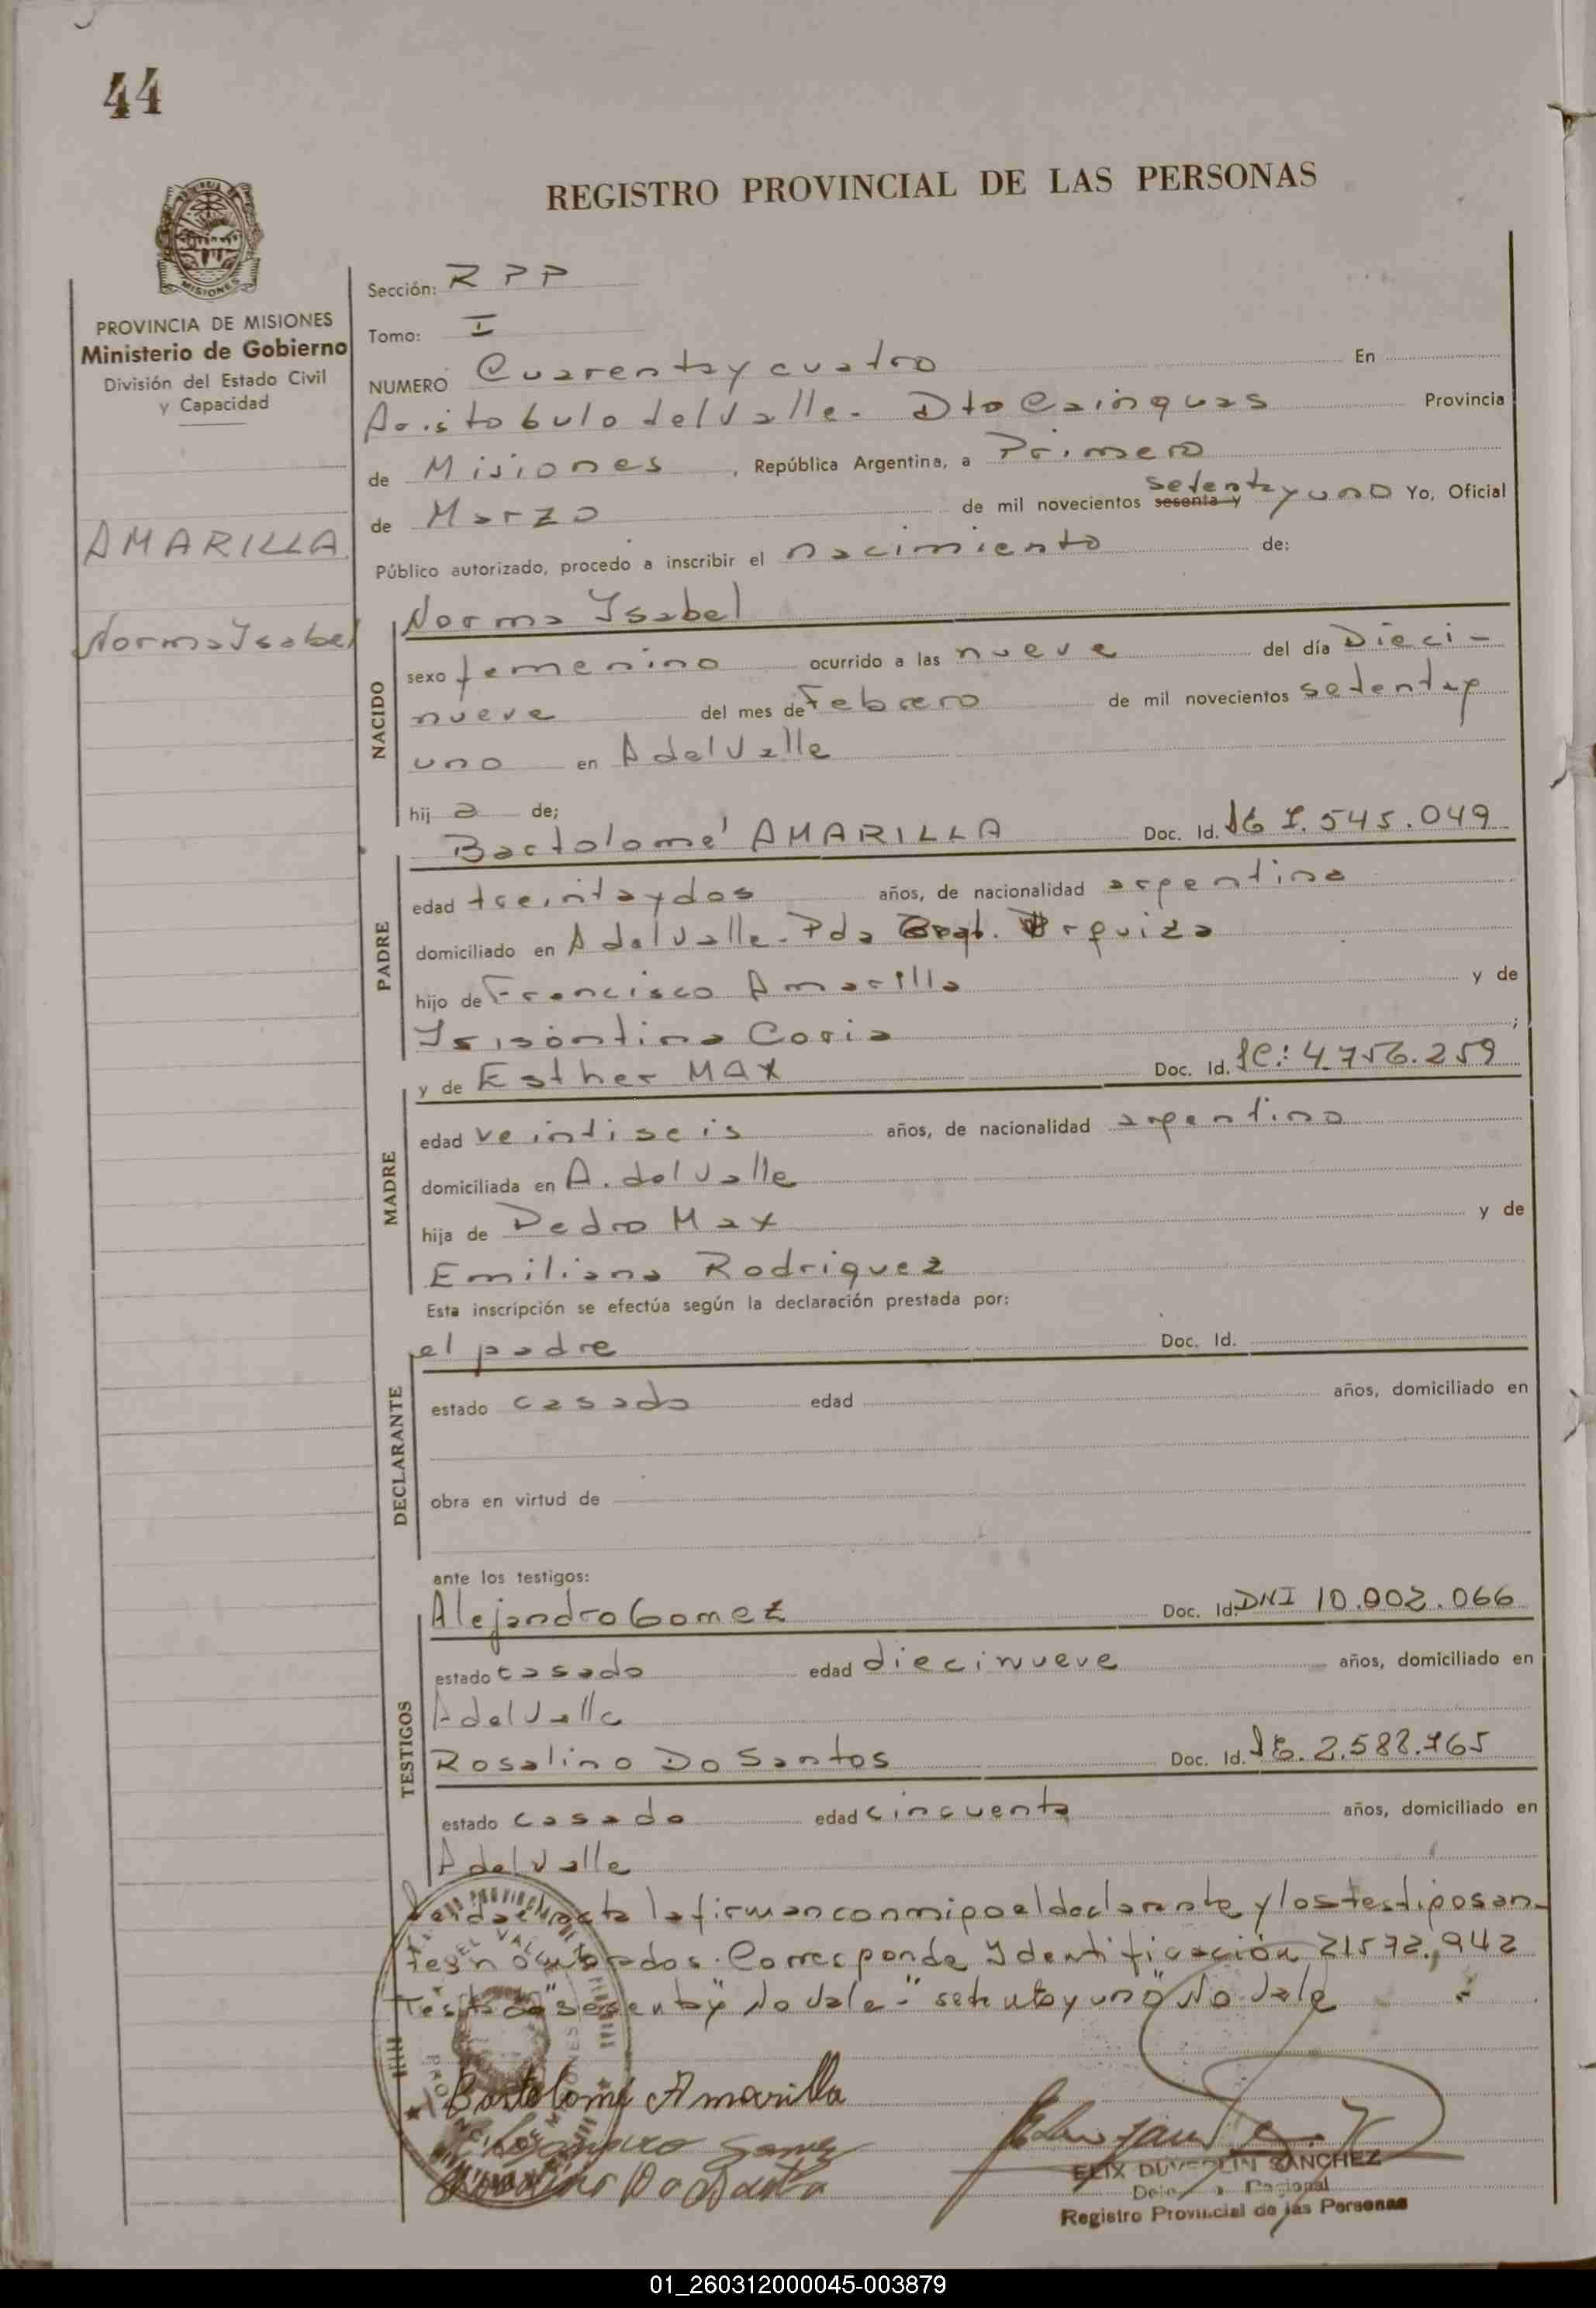 44
REGISTRO PROVINCIAL DE LAS PERSONAS
MISIONES
PROVINCIA DE MISIONES
Ministerio de Gobierno
División del Estado Civil
y Capacidad
AMARILLA
Norma Ysabel
Sección: RPP
Tomo: I
NUMERO Cuarenta y cuatro En
Aristobulo del Valle. Dto Cainguas Provincia
de Misiones, República Argentina, a Primero
de Marzo de mil novecientos sesenta y setenta y uno Yo, Oficial
Público autorizado, procedo a inscribir el nacimiento de:
NACIDO
Norma Ysabel
sexo femenino ocurrido a las nueve del día Dieci-
nueve del mes de Febrero de mil novecientos setenta y
uno en A del Valle
hija de;
PADRE
Bartolomé AMARILLA Doc. Id. 7.545.049
edad treinta y dos años, de nacionalidad argentina
domiciliado en A del Valle. Pda Gral. Urquiza
hijo de Francisco Amarilla y de
Coria;
MADRE
y de Esther MAX Doc. Id. LC: 4.756.259
edad veintiseis años, de nacionalidad argentina
domiciliada en A. del Valle
hija de Pedro Max y de
Emiliana Rodriguez
Esta inscripción se efectúa según la declaración prestada por:
DECLARANTE
el padre Doc. Id.
estado casado edad años, domiciliado en
obra en virtud de
ante los testigos:
TESTIGOS
Alejandro Gomez Doc. Id. DNI 10.002.066
estado casado edad diecinueve años, domiciliado en
A del Valle
Rosalino Do Santos Doc. Id.
estado casado edad cincuenta años, domiciliado en
A del Valle
Leida el acta la firman conmigo el declarante y los testigos an-
tes nombrados. Corresponde Ydentificación 21572.942
Testado "sesenta y" No Vale - "setenta y uno" No Vale
Bartolomé Amarilla
Alejandro Gomez
Rosalino Do Santos
ELIX DUVERLIN SANCHEZ
Registro Provincial de las Personas
01_260312000045-003879